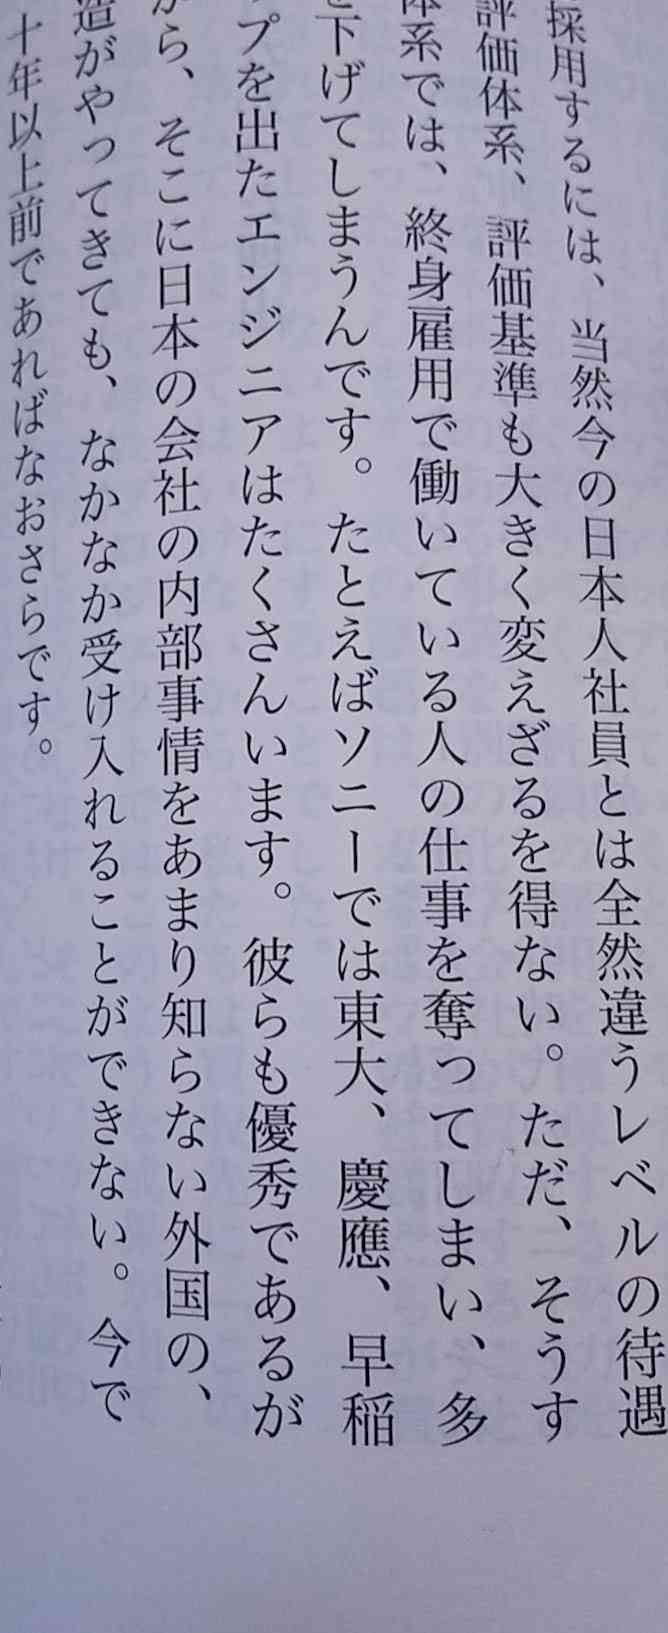 採用するには、当然今の日本人社員とは全然違うレベルの待遇
評価体系、評価基準も大きく変えざるを得ない。ただ、そうす
体系では、終身雇用で働いている人の仕事を奪ってしまい、多
を下げてしまうんです。たとえばソニーでは東大、慶應、早稲
ップを出たエンジニアはたくさんいます。彼らも優秀であるが
から、そこに日本の会社の内部事情をあまり知らない外国の、
造がやってきても、なかなか受け入れることができない。今で
十年以上前であればなおさらです。